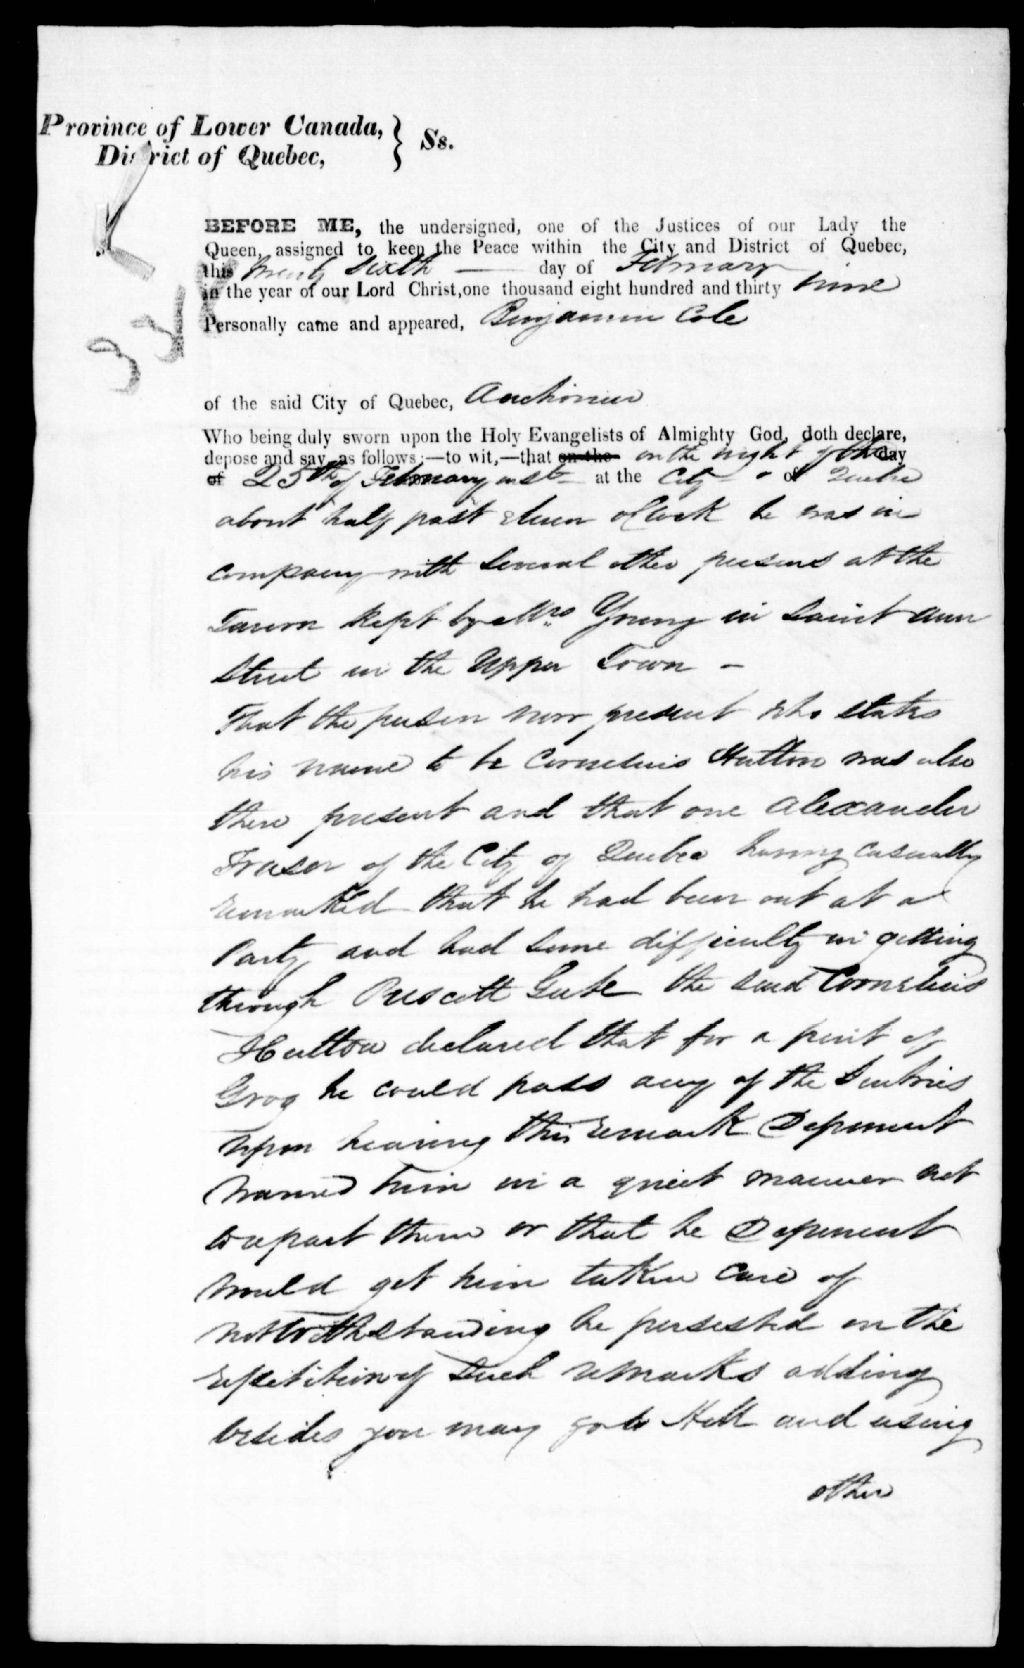 Province of Lower Canada,
District of Quebec,
} Ss.
K
331
BEFORE ME, the undersigned, one of the Justices of our Lady the
Queen, assigned to keep the Peace within the City and District of Quebec,
this Twenty Sixth — day of February
in the year of our Lord Christ, one thousand eight hundred and thirty nine
Personally came and appeared, Benjamin Cole
of the said City of Quebec, Auctioneer
Who being duly sworn upon the Holy Evangelists of Almighty God, doth declare,
depose and say as follows;—to wit,—that on the on the night of the day
of 25th of February inst at the City of Quebec
about half past eleven oClock he was in
company with several other persons at the
Tavern kept by Mrs Young in Saint Ann
Street in the Upper Town —
That the person now present who states
his name to be Cornelius Hutton was also
there present and that one Alexander
Fraser of the City of Quebec having casually
remarked that he had been out at a
Party and had some difficulty in getting
through Prescott Gate the said Cornelius
Hutton declared that for a pint of
Grog he could pass any of the Sentries
upon hearing this remark Deponent
warned him in a quiet manner not
to repeat them or that he Deponent
would get him taken care of
notwithstanding he persested in the
repetition of such remarks adding
besides you may go to Hell and using
other